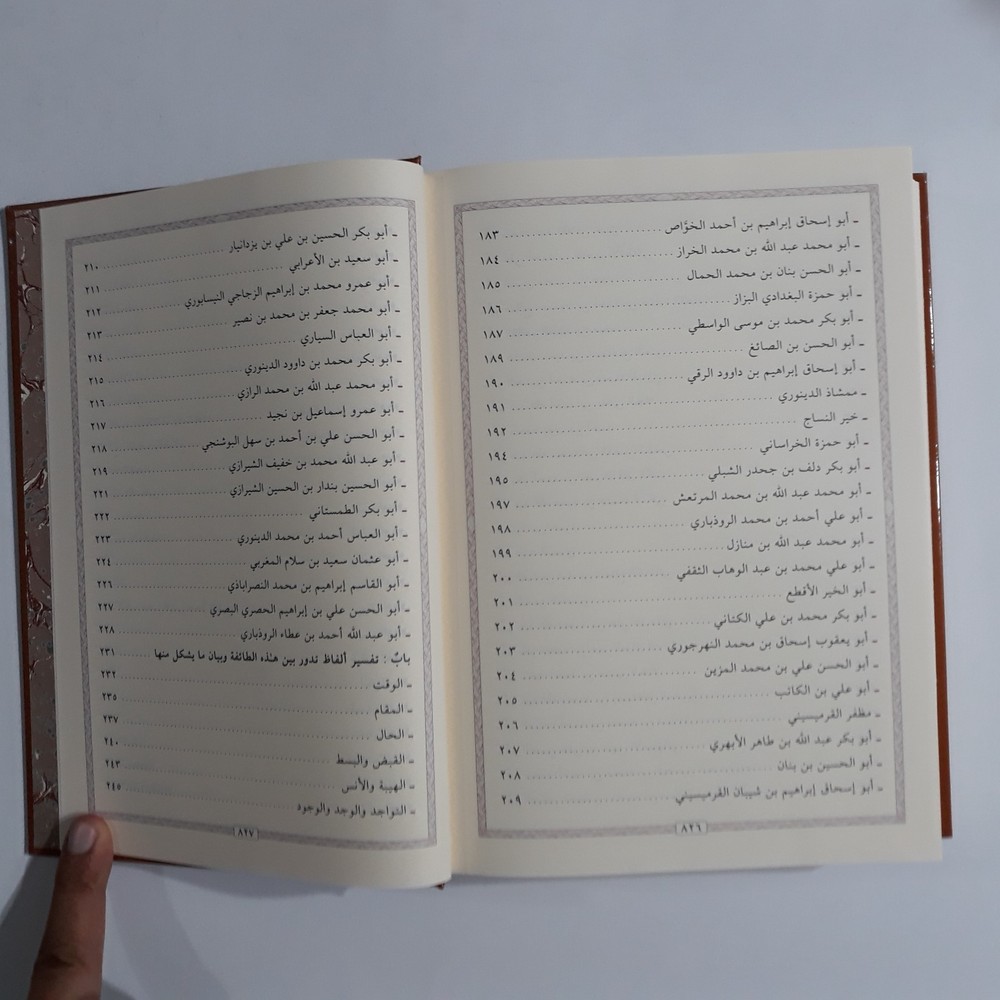 ـ أبو إسحاق إبراهيم بن أحمد الخوَّاص ........ ١٨٣
ـ أبو محمد عبد الله بن محمد الخراز ........ ١٨٤
ـ أبو الحسن بنان بن محمد الحمال ........ ١٨٥
ـ أبو حمزة البغدادي البزاز ........ ١٨٦
ـ أبو بكر محمد بن موسى الواسطي ........ ١٨٧
ـ أبو الحسن بن الصائغ ........ ١٨٩
ـ أبو إسحاق إبراهيم بن داوود الرقي ........ ١٩٠
ـ ممشاذ الدينوري ........ ١٩١
ـ خير النساج ........ ١٩٢
ـ أبو حمزة الخراساني ........ ١٩٤
ـ أبو بكر دلف بن جحدر الشبلي ........ ١٩٥
ـ أبو محمد عبد الله بن محمد المرتعش ........ ١٩٧
ـ أبو علي أحمد بن محمد الروذباري ........ ١٩٨
ـ أبو محمد عبد الله بن منازل ........ ١٩٩
ـ أبو علي محمد بن عبد الوهاب الثقفي ........ ٢٠٠
ـ أبو الخير الأقطع ........ ٢٠١
ـ أبو بكر محمد بن علي الكتاني ........ ٢٠٢
ـ أبو يعقوب إسحاق بن محمد النهرجوري ........ ٢٠٣
ـ أبو الحسن علي بن محمد المزين ........ ٢٠٤
ـ أبو علي بن الكاتب ........ ٢٠٥
ـ مظفر القرميسيني ........ ٢٠٦
ـ أبو بكر عبد الله بن طاهر الأبهري ........ ٢٠٧
ـ أبو الحسين بن بنان ........ ٢٠٨
ـ أبو إسحاق إبراهيم بن شيبان القرميسيني ........ ٢٠٩
٨٢٦
ـ أبو بكر الحسين بن علي بن يزدانيار ........ ٢١٠
ـ أبو سعيد بن الأعرابي ........ ٢١١
ـ أبو عمرو محمد بن إبراهيم الزجاجي النيسابوري ........ ٢١٢
ـ أبو محمد جعفر بن محمد بن نصير ........ ٢١٣
ـ أبو العباس السياري ........ ٢١٤
ـ أبو بكر محمد بن داوود الدينوري ........ ٢١٥
ـ أبو محمد عبد الله بن محمد الرازي ........ ٢١٦
ـ أبو عمرو إسماعيل بن نجيد ........ ٢١٧
ـ أبو الحسن علي بن أحمد بن سهل البوشنجي ........ ٢١٨
ـ أبو عبد الله محمد بن خفيف الشيرازي ........ ٢١٩
ـ أبو الحسين بندار بن الحسين الشيرازي ........ ٢٢١
ـ أبو بكر الطمستاني ........ ٢٢٢
ـ أبو العباس أحمد بن محمد الدينوري ........ ٢٢٣
ـ أبو عثمان سعيد بن سلام المغربي ........ ٢٢٤
ـ أبو القاسم إبراهيم بن محمد النصراباذي ........ ٢٢٦
ـ أبو الحسن علي بن إبراهيم الحصري البصري ........ ٢٢٧
ـ أبو عبد الله أحمد بن عطاء الروذباري ........ ٢٢٨
بابٌ : تفسير ألفاظ تدور بين هذه الطائفة وبيان ما يشكل منها ........ ٢٣١
ـ الوقت ........ ٢٣٢
ـ المقام ........ ٢٣٥
ـ الحال ........ ٢٣٧
ـ القبض والبسط ........ ٢٤٠
ـ الهيبة والأنس ........ ٢٤٣
ـ التواجد والوجد والوجود ........ ٢٤٥
٨٢٧